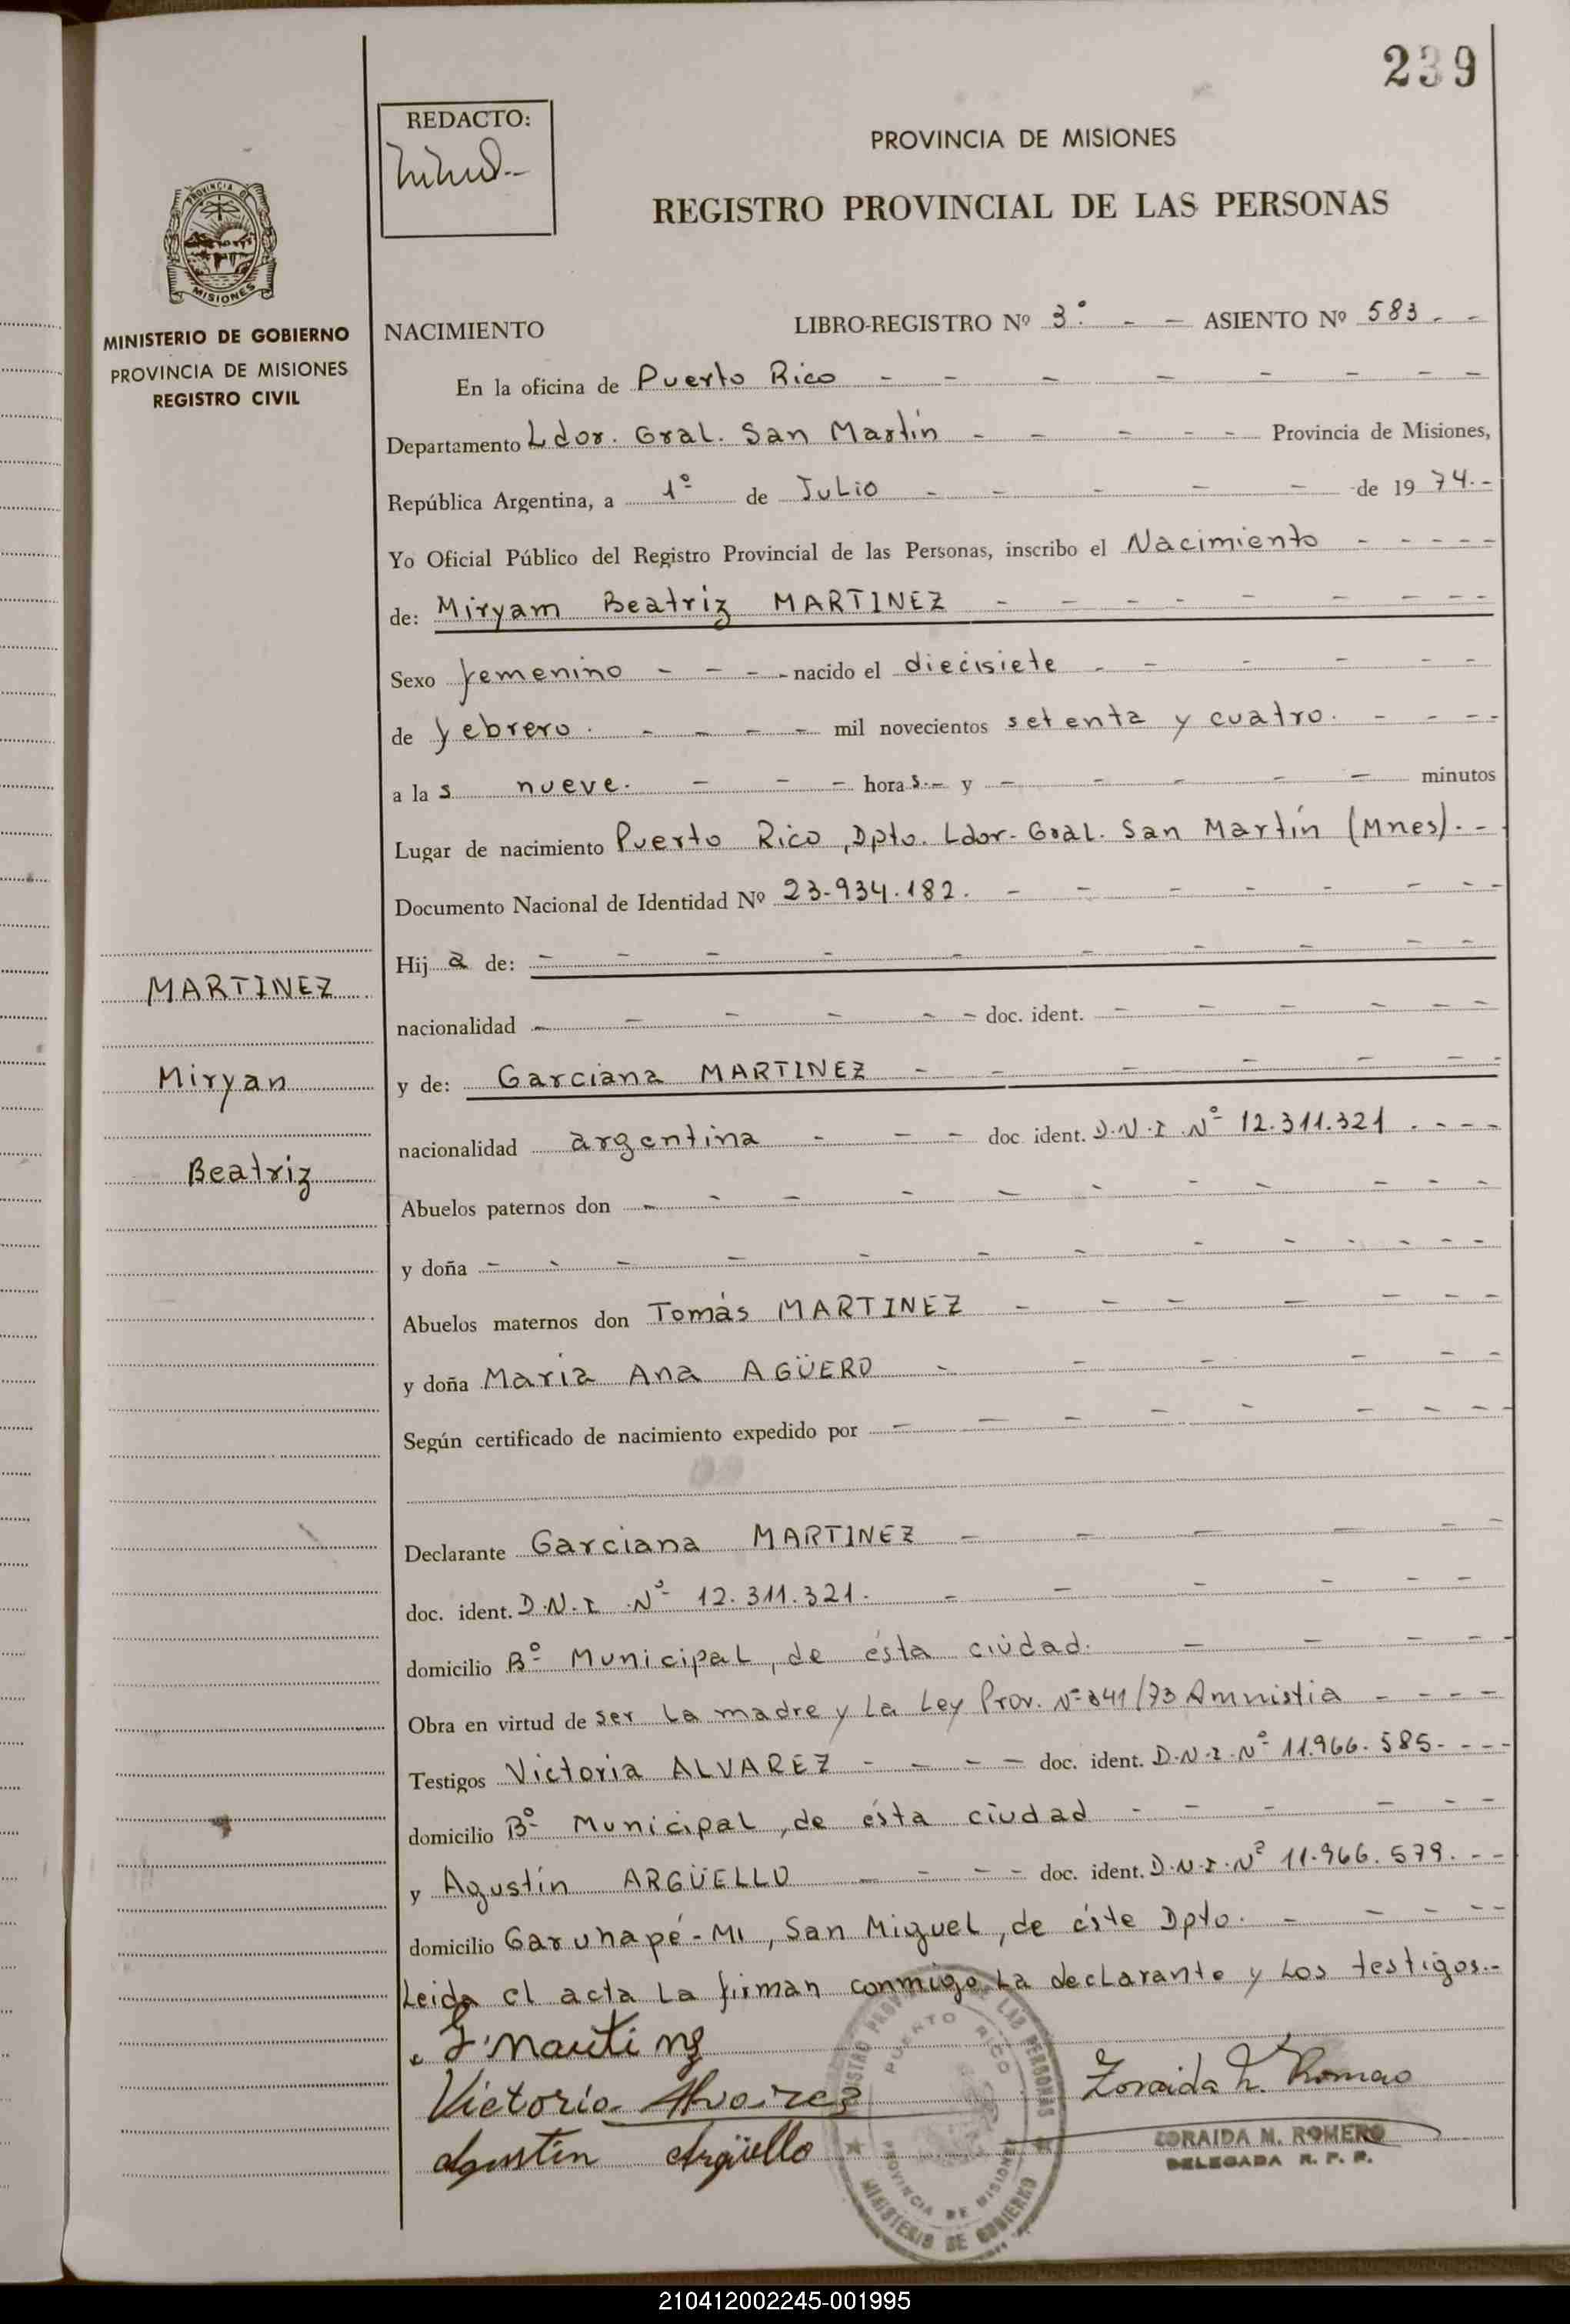 239
REDACTO:
PROVINCIA DE MISIONES
REGISTRO PROVINCIAL DE LAS PERSONAS
PROVINCIA DE
MISIONES
MINISTERIO DE GOBIERNO
PROVINCIA DE MISIONES
REGISTRO CIVIL
NACIMIENTO LIBRO-REGISTRO Nº 3º - - ASIENTO Nº 583 - -
En la oficina de Puerto Rico - - - - - - - -
Departamento Ldor. Gral. San Martín - - - - - Provincia de Misiones,
República Argentina, a 1º de Julio - - - - - de 1974.-
Yo Oficial Público del Registro Provincial de las Personas, inscribo el Nacimiento - - - - -
de: Miryam Beatriz MARTINEZ - - - - - - - - -
Sexo femenino - - - - nacido el diecisiete - - - - - -
de febrero. - - - - mil novecientos setenta y cuatro. - - - -
a las nueve. - - - horas.- y - - - - - minutos
Lugar de nacimiento Puerto Rico, Dpto. Ldor. Gral. San Martín (Mnes). -
Documento Nacional de Identidad Nº 23.934.182. - - - - - - - -
Hija de: - - - - - - - - -
nacionalidad - - - - - - doc. ident. - - - - - -
y de: Garciana MARTINEZ - - - - - -
nacionalidad argentina - - - doc ident. D.N.I. Nº 12.311.321 . - - -
Abuelos paternos don - - - - - - - - - - -
y doña - - - - - - - - - - - -
Abuelos maternos don Tomás MARTINEZ - - - - - - -
y doña Maria Ana AGÜERO - - - - - -
Según certificado de nacimiento expedido por - - - - - - - - -
Declarante Garciana MARTINEZ - - - - - -
doc. ident. D.N.I. Nº 12.311.321. - - - - - -
domicilio Bº Municipal, de ésta ciudad. - - - -
Obra en virtud de ser la madre y La Ley Prov. Nº 841/73 Amnistia - - - -
Testigos Victoria ALVAREZ - - - - doc. ident. D.N.I. Nº 11.966.585. - - -
domicilio Bº Municipal, de ésta ciudad - - - - - -
y Agustín ARGÜELLO - - - - doc. ident. D.N.I. Nº 11.966.579. - -
domicilio Garuhapé-Mí, San Miguel, de éste Dpto. - - - - -
Leida el acta La firman conmigo La declarante y Los testigos.-
MARTINEZ
Miryan
Beatriz
Victoria Alvarez
Agustín Argüello
Zoraida M. Romero
ZORAIDA M. ROMERO
DELEGADA R. P. P.
REGISTRO PROVINCIAL DE LAS PERSONAS
PUERTO RICO
PROVINCIA DE MISIONES
MINISTERIO DE GOBIERNO
210412002245-001995